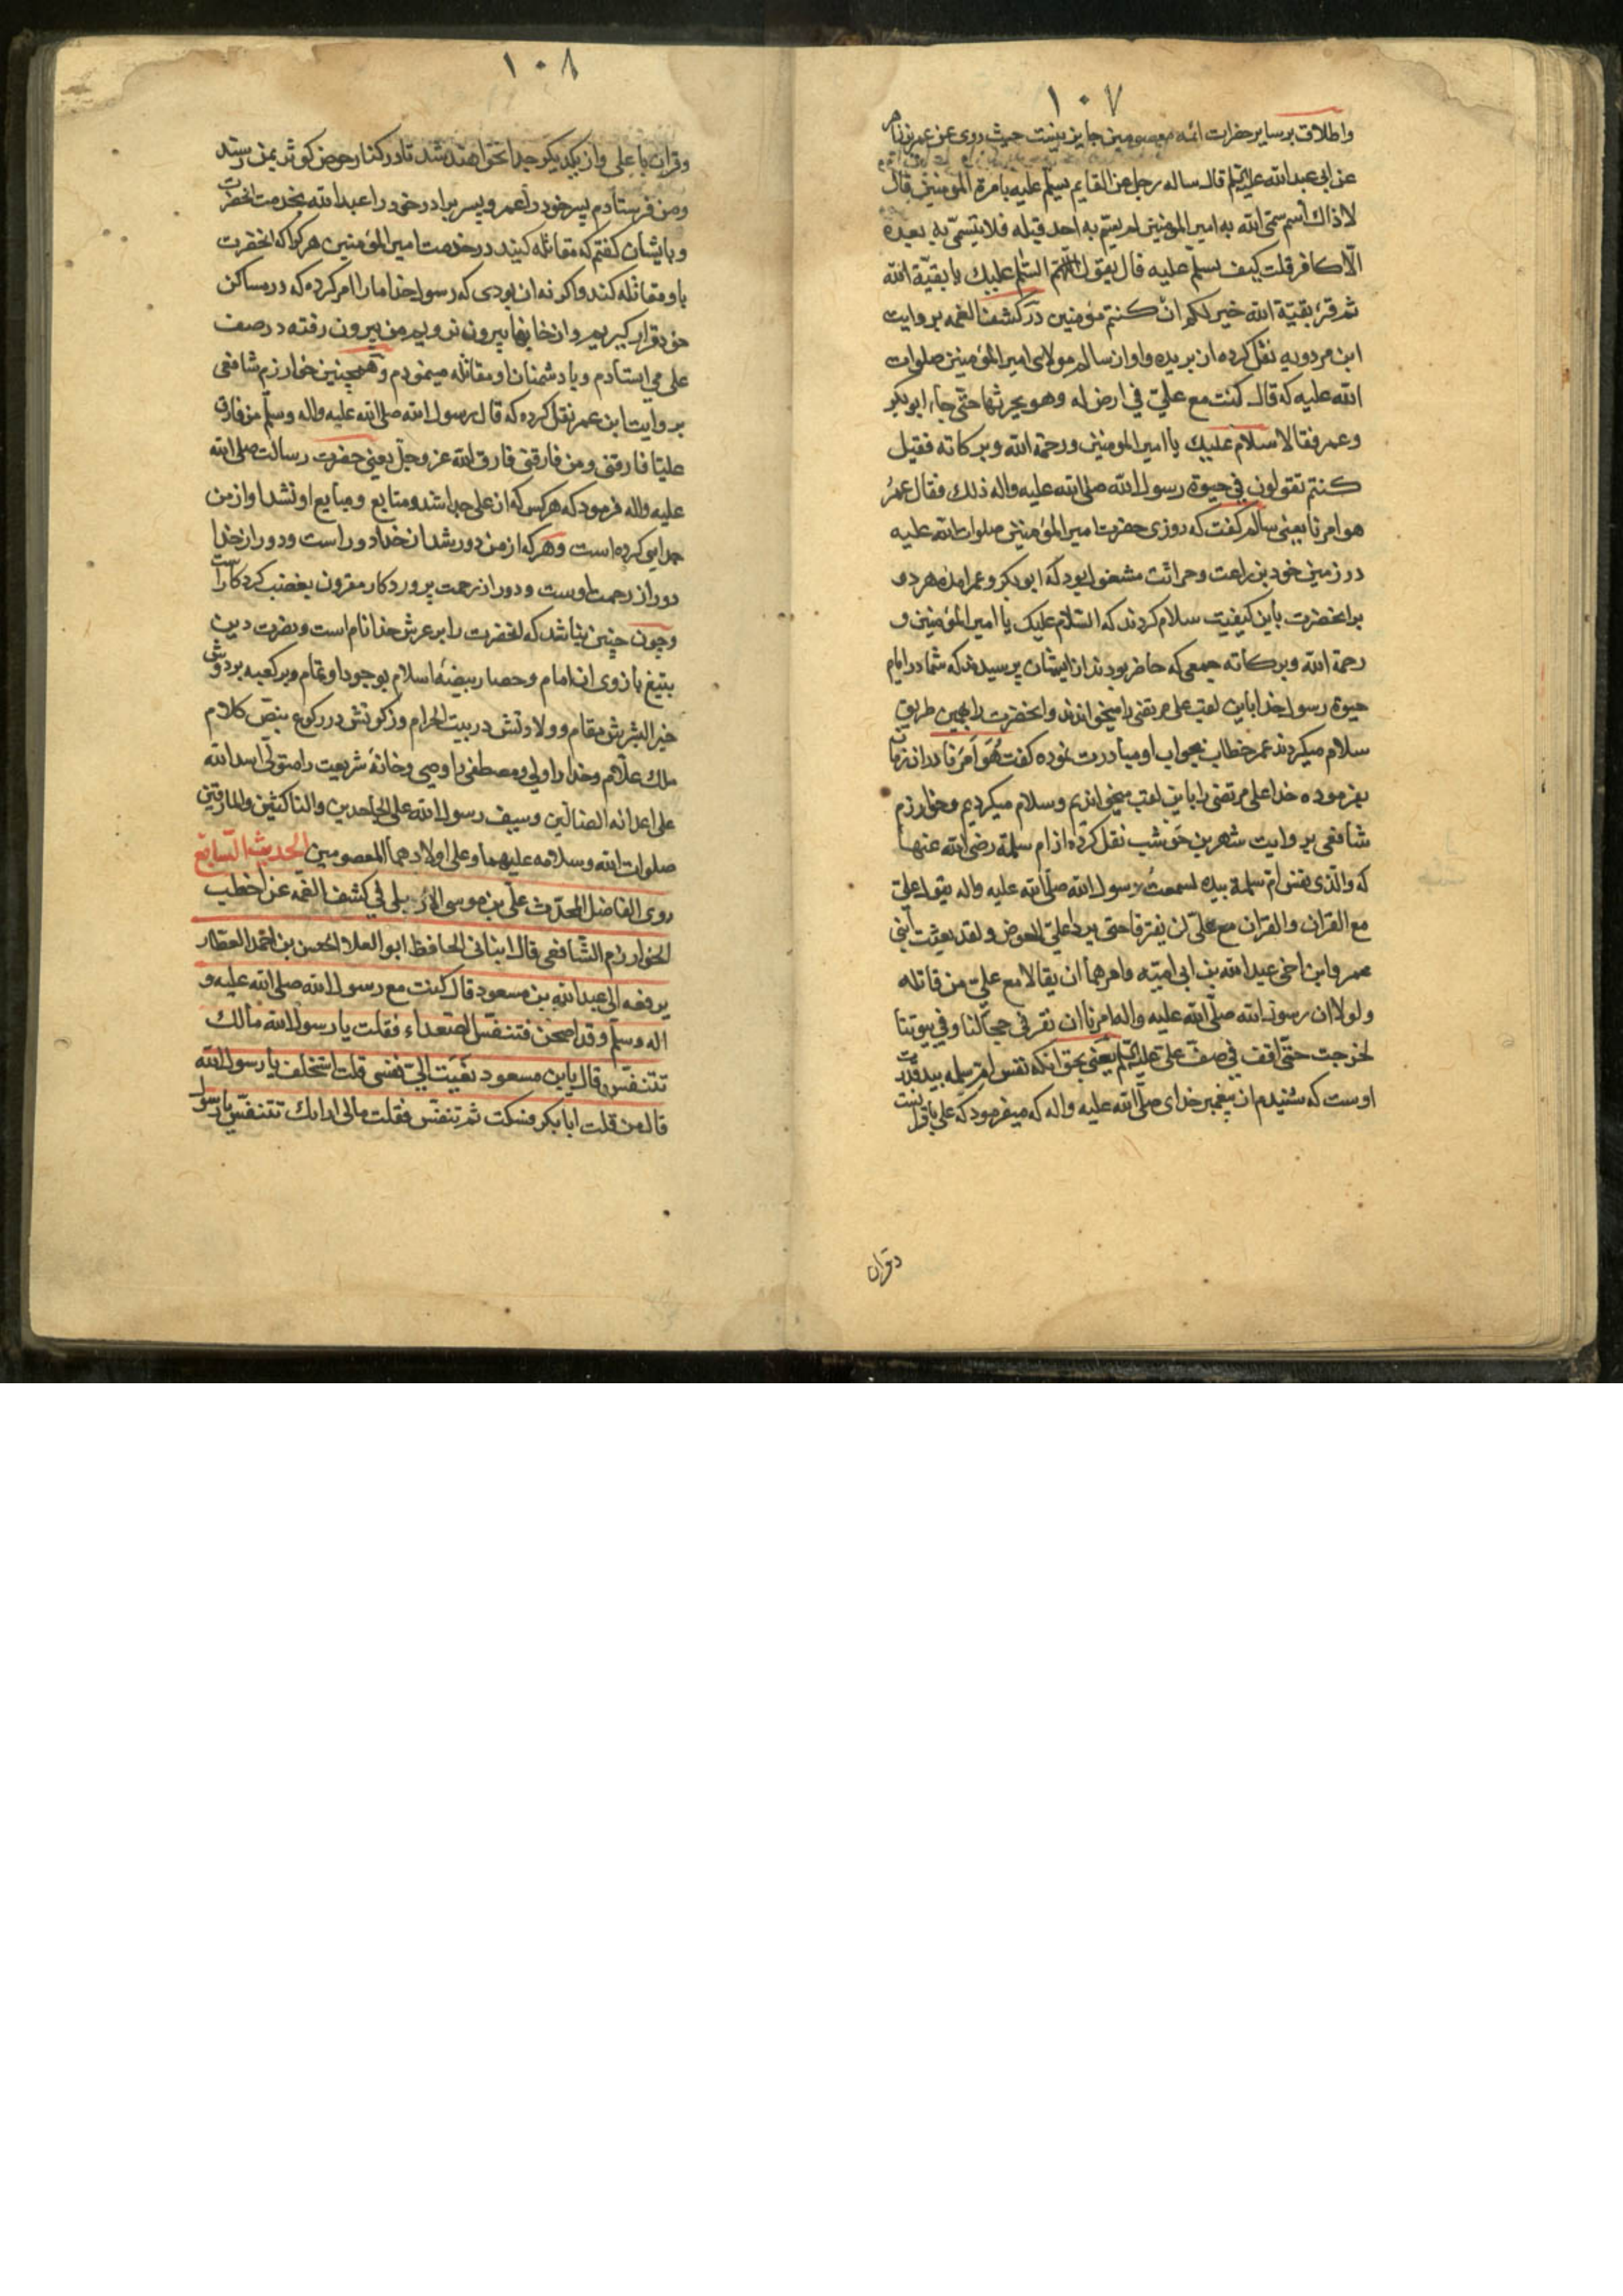 ١٠٧
واطلاق بر ساير حضرات ائمه معصومين جايز نيست حيث روى عن عمر بن زاهر
عن ابى عبد الله عليه السلم قال ساله رجل عن القايم يسلم عليه بامرة المومنين قال
لا ذاك اسم سمى الله به امير المومنين لم يسم به احد قبله فلا يتسمى به بعده
الا كافر قلت كيف يسلم عليه قال يقول السلم عليك يا بقية الله
ثم قرء بقية الله خير لكم ان كنتم مؤمنين در كشف الغمه بروايت
ابن مردويه نقل كرده از بريده واو از سالم مولاى امير المؤمنين صلوات
الله عليه كه قال كنت مع على في ارض له وهو يحرثها حتى جاء ابو بكر
وعمر فقالا سلام عليك يا امير المومنين ورحمة الله وبركاته فقيل
كنتم تقولون في حيوة رسول الله صلى الله عليه واله ذلك فقال عمر
هو امرنا يعنى سالم كفت كه روزى حضرت امير المؤمنين صلوات الله عليه
در زمين خود بزراعت وحراثت مشغول بود كه ابو بكر وعمر امده هر دو
بر انحضرت باين كيفيت سلام كردند كه السلام عليك يا امير المؤمنين و
رحمة الله وبركاته جمعى كه حاضر بودند از ايشان پرسيدند كه شما در ايام
حيوة رسول خدا باين لقب على مرتضى را ميخوانديد وانحضرت را بهمين طريق
سلام ميكرديد عمر خطاب بجواب او مبادرت نموده كفت هو امرنا در ان زمان
بفرموده خدا على مرتضى را باين لقب ميخوانديم وسلام ميكرديم وخوارزم
شافعى بروايت شهر بن حوشب نقل كرده از ام سلمة رضى الله عنها
كه والذى نفس ام سلمة بيده لسمعت رسول الله صلى الله عليه واله يقول على
مع القران والقران مع على لن يفترقا حتى يردا على الحوض ولقد بعثت ابنى
عمر وابن اخى عبد الله بن ابى امية وامرهما ان يقاتلا مع على من قاتله
ولولا ان رسول الله صلى الله عليه واله امرنا ان نقر في حجالنا وفي بيوتنا
لخرجت حتى اقف في صف على عليه السلم يعنى بحق انكه نفس ام سلمه بيد قدرت
اوست كه شنيدم از پيغمبر خداى صلى الله عليه واله كه ميفرمود كه على با قران است
وقران
١٠٨
وقران با على واز يكديكر جدا نخواهند شد تا در كنار حوض كوثر بمن رسند
ومن فرستادم پسر خود را عمر وپسر برادر خود را عبد الله بخدمت انحضرت
وبايشان كفتم كه مقاتله كنيد در خدمت امير المؤمنين هر كرا كه انحضرت
با او مقاتله كند واكر نه ان بودى كه رسول خدا ما را امر كرده كه در مساكن
خود قرار كيريم واز خانها بيرون نرويم من بيرون رفته در صف
على مى ايستادم وبا دشمنان او مقاتله مينمودم وهمچنين خوارزم شافعى
بروايت ابن عمر نقل كرده كه قال رسول الله صلى الله عليه واله وسلم من فارق
عليا فارقنى ومن فارقنى فارق الله عز وجل يعنى حضرت رسالت صلى الله
عليه واله فرمود كه هر كس كه از على جدا شد ومتابع ومبايع او نشد او از من
جدايى كرده است وهر كه از من دور شد از خدا دور است ودور از خدا
دور از رحمت اوست ودور از رحمت پروردكار مقرون بغضب كردكار است
وچون چنين نباشد كه انحضرت را بر عرش خدا نام است ونصرت دين
بتيغ بازوى ان امام وحصار بيضه اسلام بوجود او تمام وبر كعبه بر دوش
خير البشرش مقام وولادتش در بيت الحرام وزكوتش در ركوع بنص كلام
ملك علام وخدا را ولى ومصطفى را وصى وخانه شريعت را متولى اسد الله
على اعدائه الضالين وسيف رسول الله على الجاحدين والناكثين والمارقين
صلوات الله وسلامه عليهما وعلى اولادهما المعصومين الحديث السابع
روى الفاضل المحدث على بن موسى الاربلى في كشف الغمه عن اخطب
الخوارزم الشافعى قال انبانى الحافظ ابو العلا الحسن بن احمد العطار
يرفعه الى عبد الله بن مسعود قال كنت مع رسول الله صلى الله عليه و
اله وسلم وقد اصحر فتنفس الصعداء فقلت يا رسول الله مالك
تتنفس قال يابن مسعود نعيت الى نفسى قلت استخلف يا رسول الله
قال من قلت ابا بكر فسكت ثم تنفس فقلت مالى اراك تتنفس يا رسول